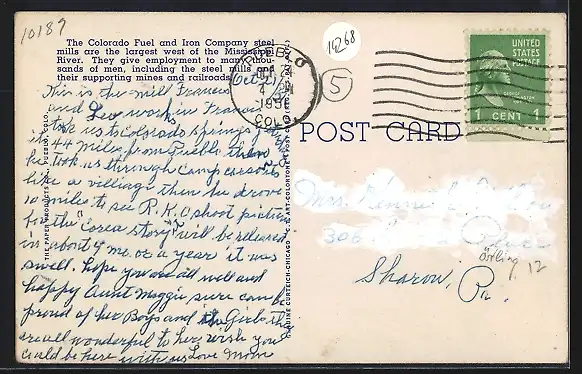 10189
The Colorado Fuel and Iron Company steel
mills are the largest west of the Mississippi
River. They give employment to many thou-
sands of men, including the steel mills and
their supporting mines and railroads.
Oct
This is the mill Francis
and Leo work in Francis
took us to Colorado Springs
44 miles from Pueblo then
he took us through Camp Carson its
like a village then he drove
10 miles to see R.K.O shoot picture
for the "Corea story" will be released
in about 9 mo. or a year it was
swell. hope you are all well and
happy Aunt Maggie sure can be
proud of her Boys and the Girls th
are all wonderful to her, wish you
could be here with us Love Mom
THE PAPER PRODUCTS CO., PUEBLO, COLO.
GENUINE CURTEICH-CHICAGO "C. T. ART-COLORTONE" POST CARD
14268
5
PUEBLO
4
1951
COLO.
UNITED
STATES
POSTAGE
1 CENT 1
POST CARD
Mrs.
306
Sharon, Pa.
12